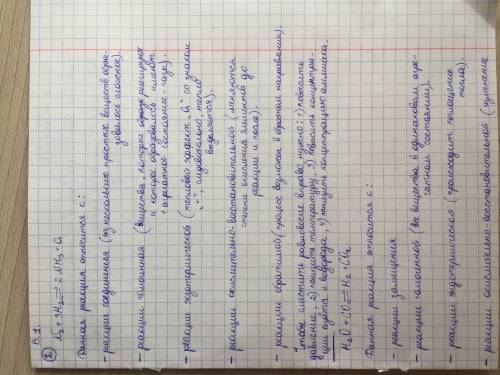 В.1.
② N₂ + 3H₂ ⇄ 2 NH₃ + Q
Данная реакция относится к:
- реакции соединения (из нескольких простых веществ обра-
зовалось сложное).
- реакции гомогенная (вещества, которые реагируют
и которые образовались имеют
1 агрегатное состояние - газы).
- реакции экзотермической (тепловой эффект „Q" со знаком
„+", следовательно, тепло
выделяется).
- реакции окислительно-восстановительной (меняются
степени окисления элементов до
реакции и после).
- реакции обратимой (процесс возможен в обратном направлении).
Чтобы сместить равновесие вправо нужно: 1) повысить
давление, 2) понизить температуру, 3) повысить концентра-
ции азота и водорода, 4) понизить концентрацию аммиака.
H₂O + CO ⇄ H₂ + CO₂
Данная реакция относится к:
- реакции замещения
- реакции гомогенной (все вещества в одинаковом агре-
гатном состоянии).
- реакции эндотермической (происходит поглощение
тепла).
- реакции окислительно-восстановительной